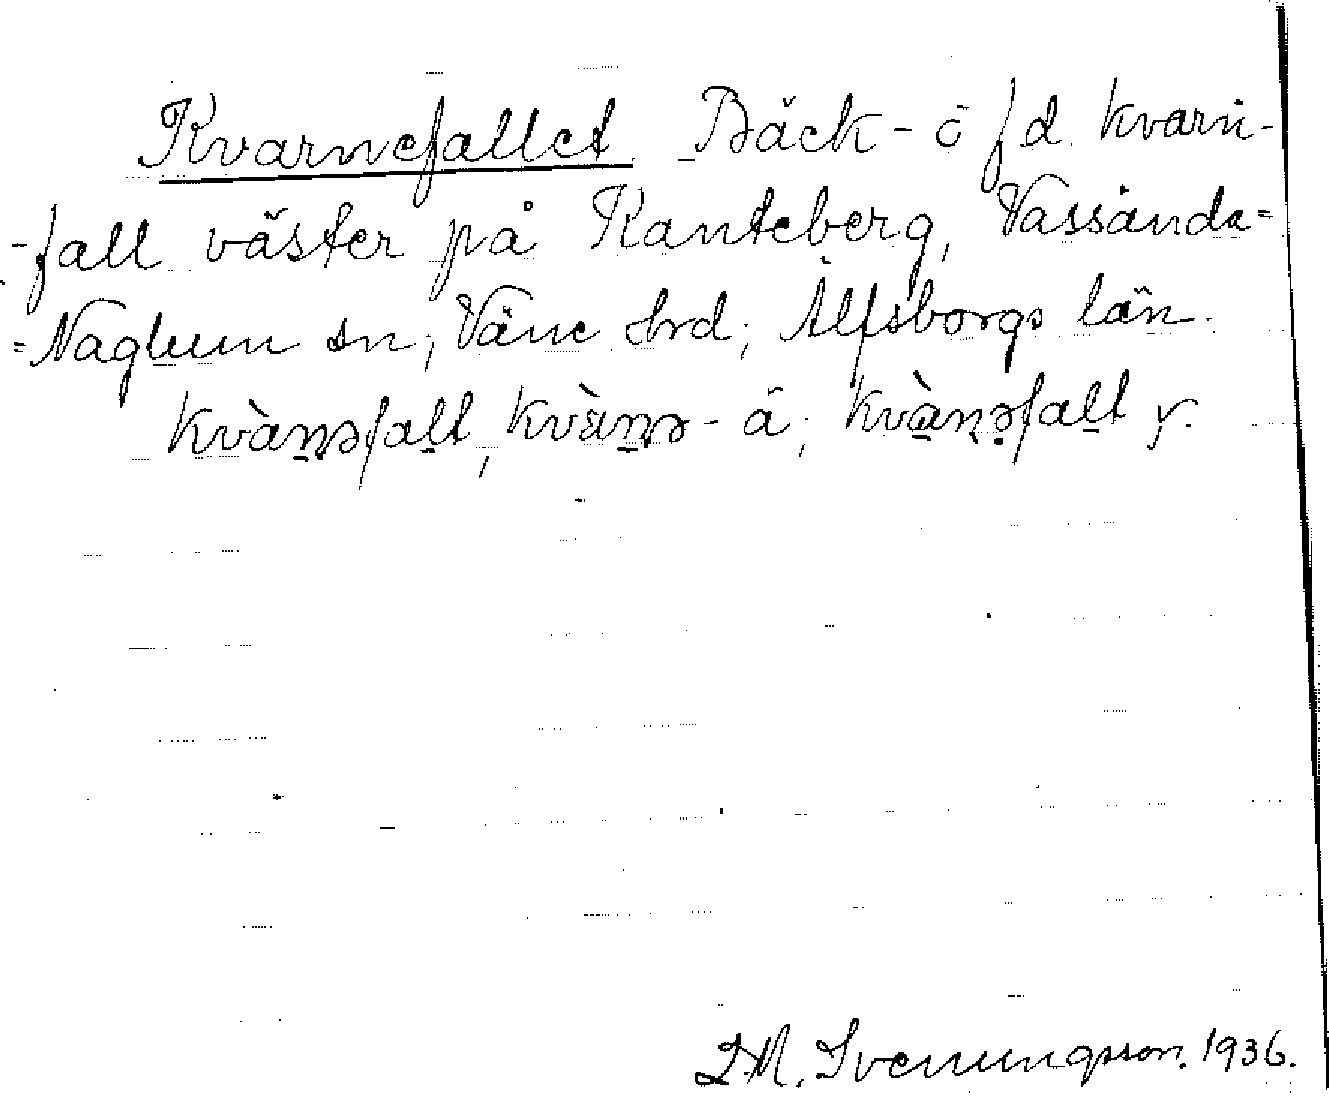 Kvarnefallet Bäck- o f d kvarn-
-fall väster på Kanteberg, Vassända=
=Naglum sn, Väne hrd, Älfsborgs län.
kvàn̥əfalt, kvàn̥ə-ä, kvàn̥əfalt
Svenungsson. 1936.